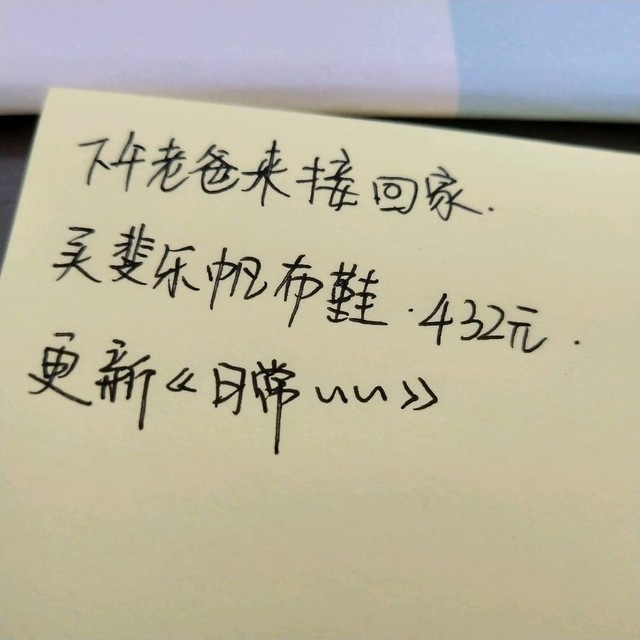 下午老爸来接回家.
买斐乐帆布鞋.432元.
更新《日常〰〰》